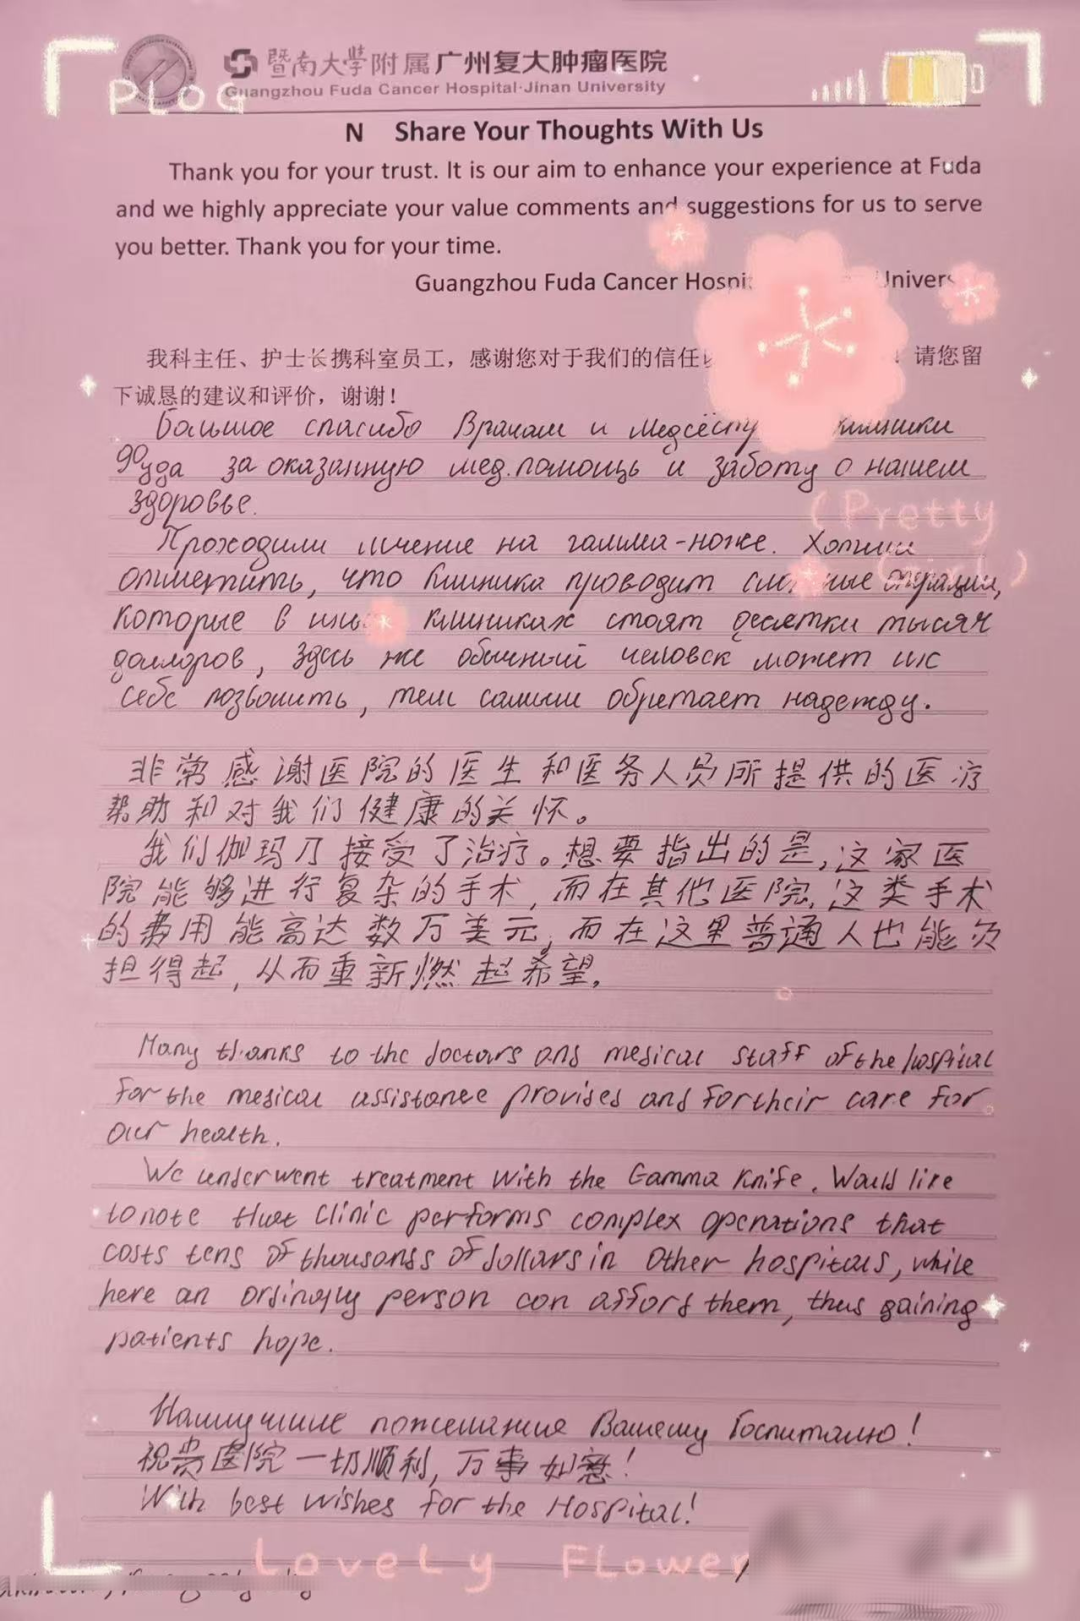 PLOG
暨南大學附属广州复大肿瘤医院
Guangzhou Fuda Cancer Hospital·Jinan University
N Share Your Thoughts With Us
Thank you for your trust. It is our aim to enhance your experience at Fuda
and we highly appreciate your value comments and suggestions for us to serve
you better. Thank you for your time.
Guangzhou Fuda Cancer
我科主任、护士长携科室员工，感谢您对于我们的信任 请您留
下诚恳的建议和评价，谢谢！
Большое спасибо Врачам и клиники
Фуда за оказанную мед.помощь и заботу о нашем
здоровье.
(Pretty
Проходили лечение на гамма-ноже. Хотим
отметить, что Клиника проводит операции,
которые в клиниках стоят десятки тысяч
долларов, здесь же обычный человек может их
себе позволить, тем самым обретает надежду.
非常感谢医院的医生和医务人员所提供的医疗
帮助和对我们健康的关怀。
我们伽玛刀接受了治疗。想要指出的是，这家医
院能够进行复杂的手术，而在其他医院，这类手术
的费用能高达数万美元，而在这里普通人也能负
担得起，从而重新燃起希望。
Many thanks to the doctors and medical staff of the hospital
for the medical assistance provided and for their care for
our health.
We underwent treatment with the Gamma Knife. Would like
to note that Clinic performs complex operations that
costs tens of thousands of dollars in other hospitals, while
here an ordinary person can afford them, thus gaining
patients hope.
Наилучшие пожелания Вашему Госпиталю!
祝贵医院一切顺利，万事如意！
With best wishes for the Hospital!
Lovely Flower